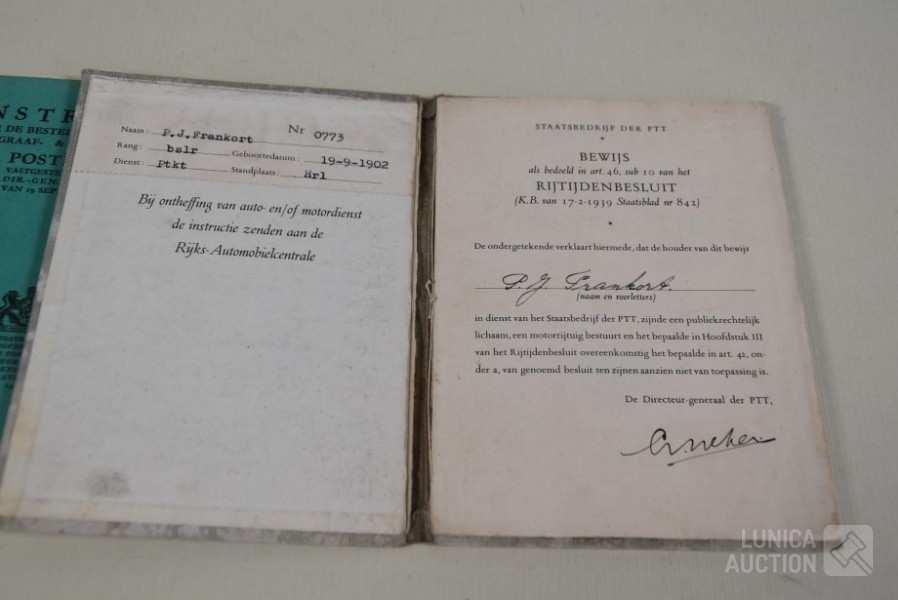 NSTR
R DE BESTEL
GRAAF- &
POST
VASTGESTE
DIR.-GEN.
VAN 19 SEP
Naam: P.J.Frankort Nr 0773
Rang: bslr Geboortedatum: 19-9-1902
Dienst: Ptkt Standplaats: Hrl
Bij ontheffing van auto- en/of motordienst
de instructie zenden aan de
Rijks-Automobielcentrale
STAATSBEDRIJF DER PTT
BEWIJS
als bedoeld in art. 46, sub 10 van het
RIJTIJDENBESLUIT
(K.B. van 17-2-1939 Staatsblad nr 842)
De ondergetekende verklaart hiermede, dat de houder van dit bewijs
P. J. Frankort.
(naam en voorletters)
in dienst van het Staatsbedrijf der PTT, zijnde een publiekrechtelijk
lichaam, een motorrijtuig bestuurt en het bepaalde in Hoofdstuk III
van het Rijtijdenbesluit overeenkomstig het bepaalde in art. 42, on-
der a, van genoemd besluit ten zijnen aanzien niet van toepassing is.
De Directeur-generaal der PTT,
LUNICA
AUCTION